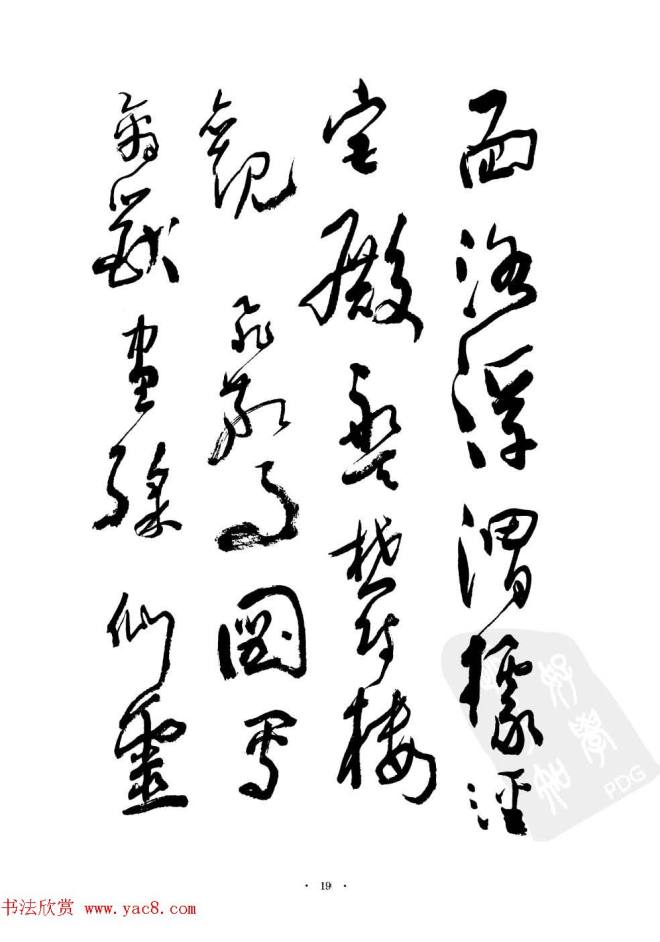 面洛浮渭據涇
宮殿盤鬱樓
觀飛驚圖寫
禽獸畫綵仙靈
· 19 ·
书法欣赏 www.yac8.com
PDG